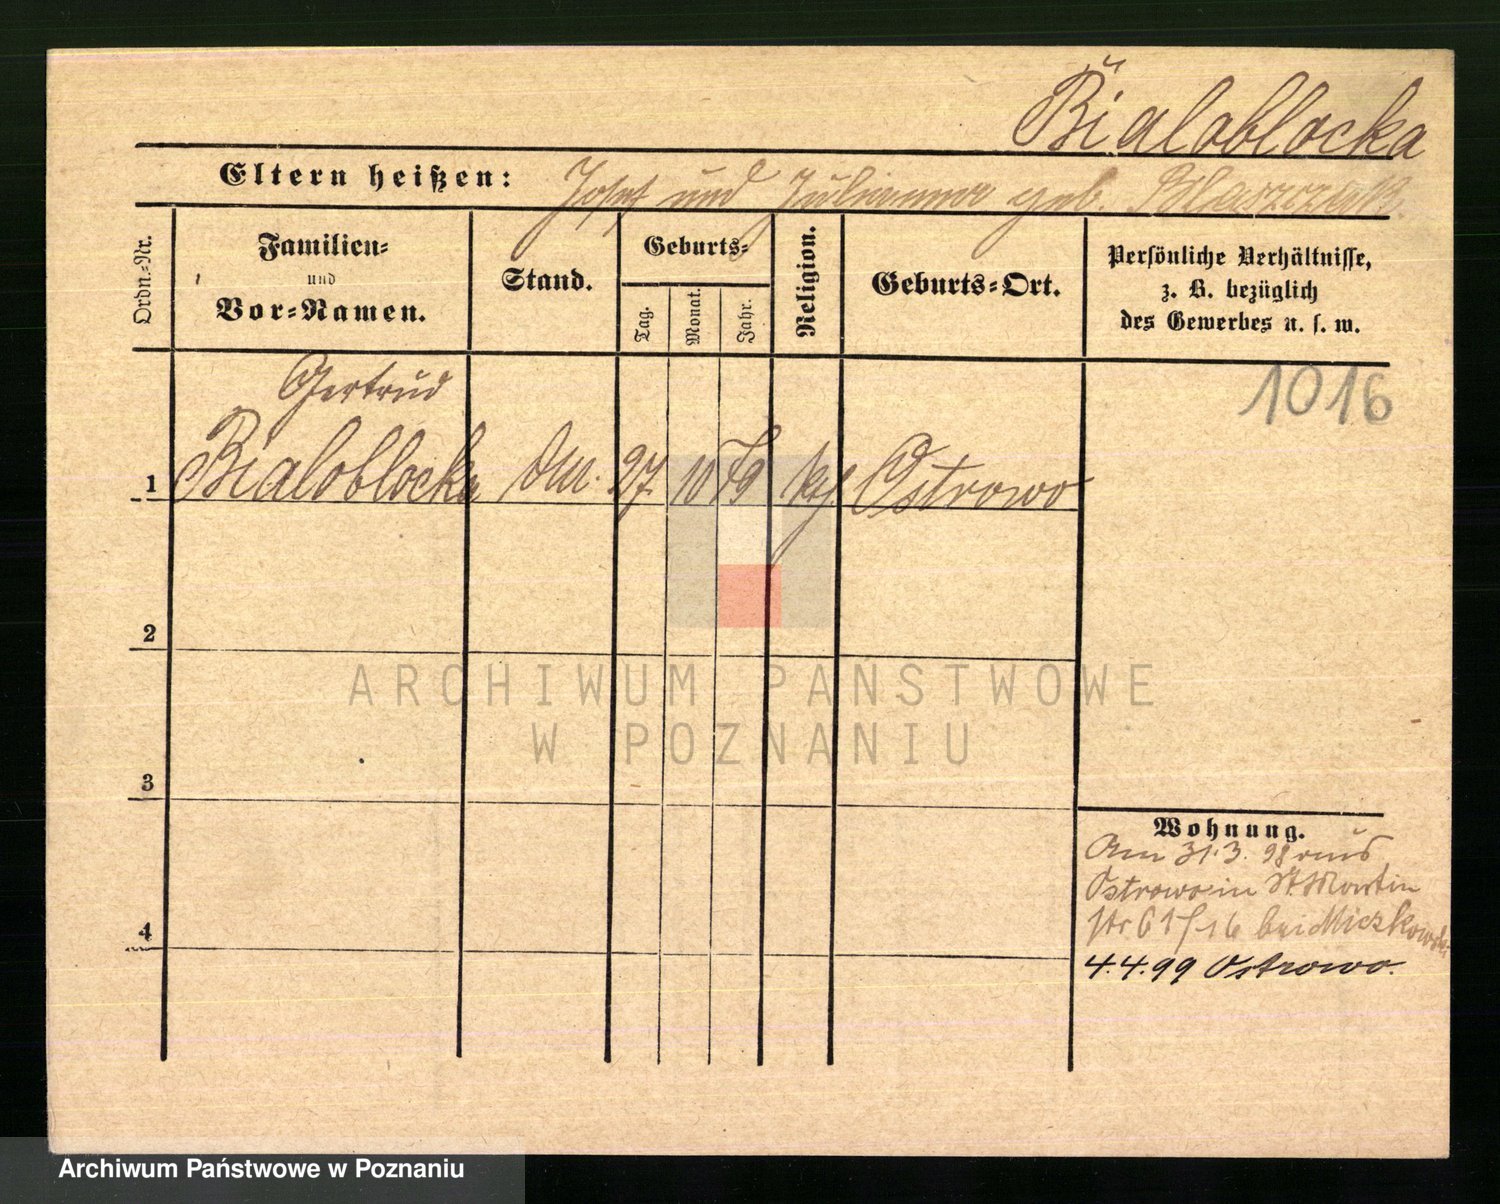 Bialoblocka
Eltern heißen: Josef und Julianna geb. Blaszczak
Ordn.-Nr.
Familien-
und
Vor-Namen.
Stand.
Geburts-
Tag.
Monat.
Jahr.
Religion.
Geburts-Ort.
Persönliche Verhältnisse,
z. B. bezüglich
des Gewerbes u. s. w.
1016
Gertrud
1 Bialoblocka 27. 10 79 kth Ostrowo
2
3
4
ARCHIWUM PAŃSTWOWE
W POZNANIU
Wohnung.
Am 31.3. 98 aus
Ostrowo in St. Martin
str 61/16 bei
4.4.99 Ostrowo.
Archiwum Państwowe w Poznaniu